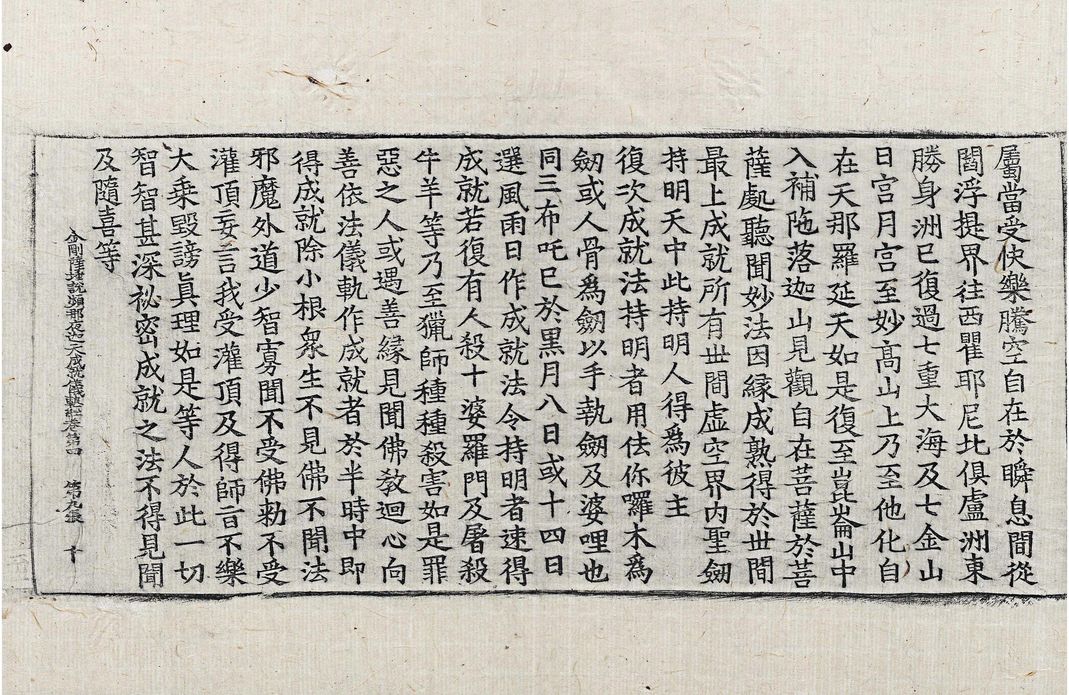 屬當受快樂騰空自在於瞬息間從
閻浮提界往西瞿耶尼北俱盧洲東
勝身洲已復過七重大海及七金山
日宮月宮至妙高山上乃至他化自
在天那羅延天如是復至崑崙山中
入補陁落迦山見觀自在菩薩於菩
薩處聽聞妙法因緣成熟得於世間
最上成就所有世間虛空界內聖劒
持明天中此持明人得爲彼主
復次成就法持明者用佉你囉木爲
劒或人骨爲劒以手執劒及婆哩也
同三布吒已於黑月八日或十四日
選風雨日作成就法令持明者速得
成就若復有人殺十婆羅門及屠殺
牛羊等乃至獵師種種殺害如是罪
惡之人或遇善緣見聞佛教迴心向
善依法儀軌作成就者於半時中即
得成就除小根衆生不見佛不聞法
邪魔外道少智寡聞不受佛勅不受
灌頂妄言我受灌頂及得師旨不樂
大乘毀謗眞理如是等人於此一切
智智甚深祕密成就之法不得見聞
及隨喜等
金剛薩埵說頻那夜迦天成就儀軌經卷第四 第九張